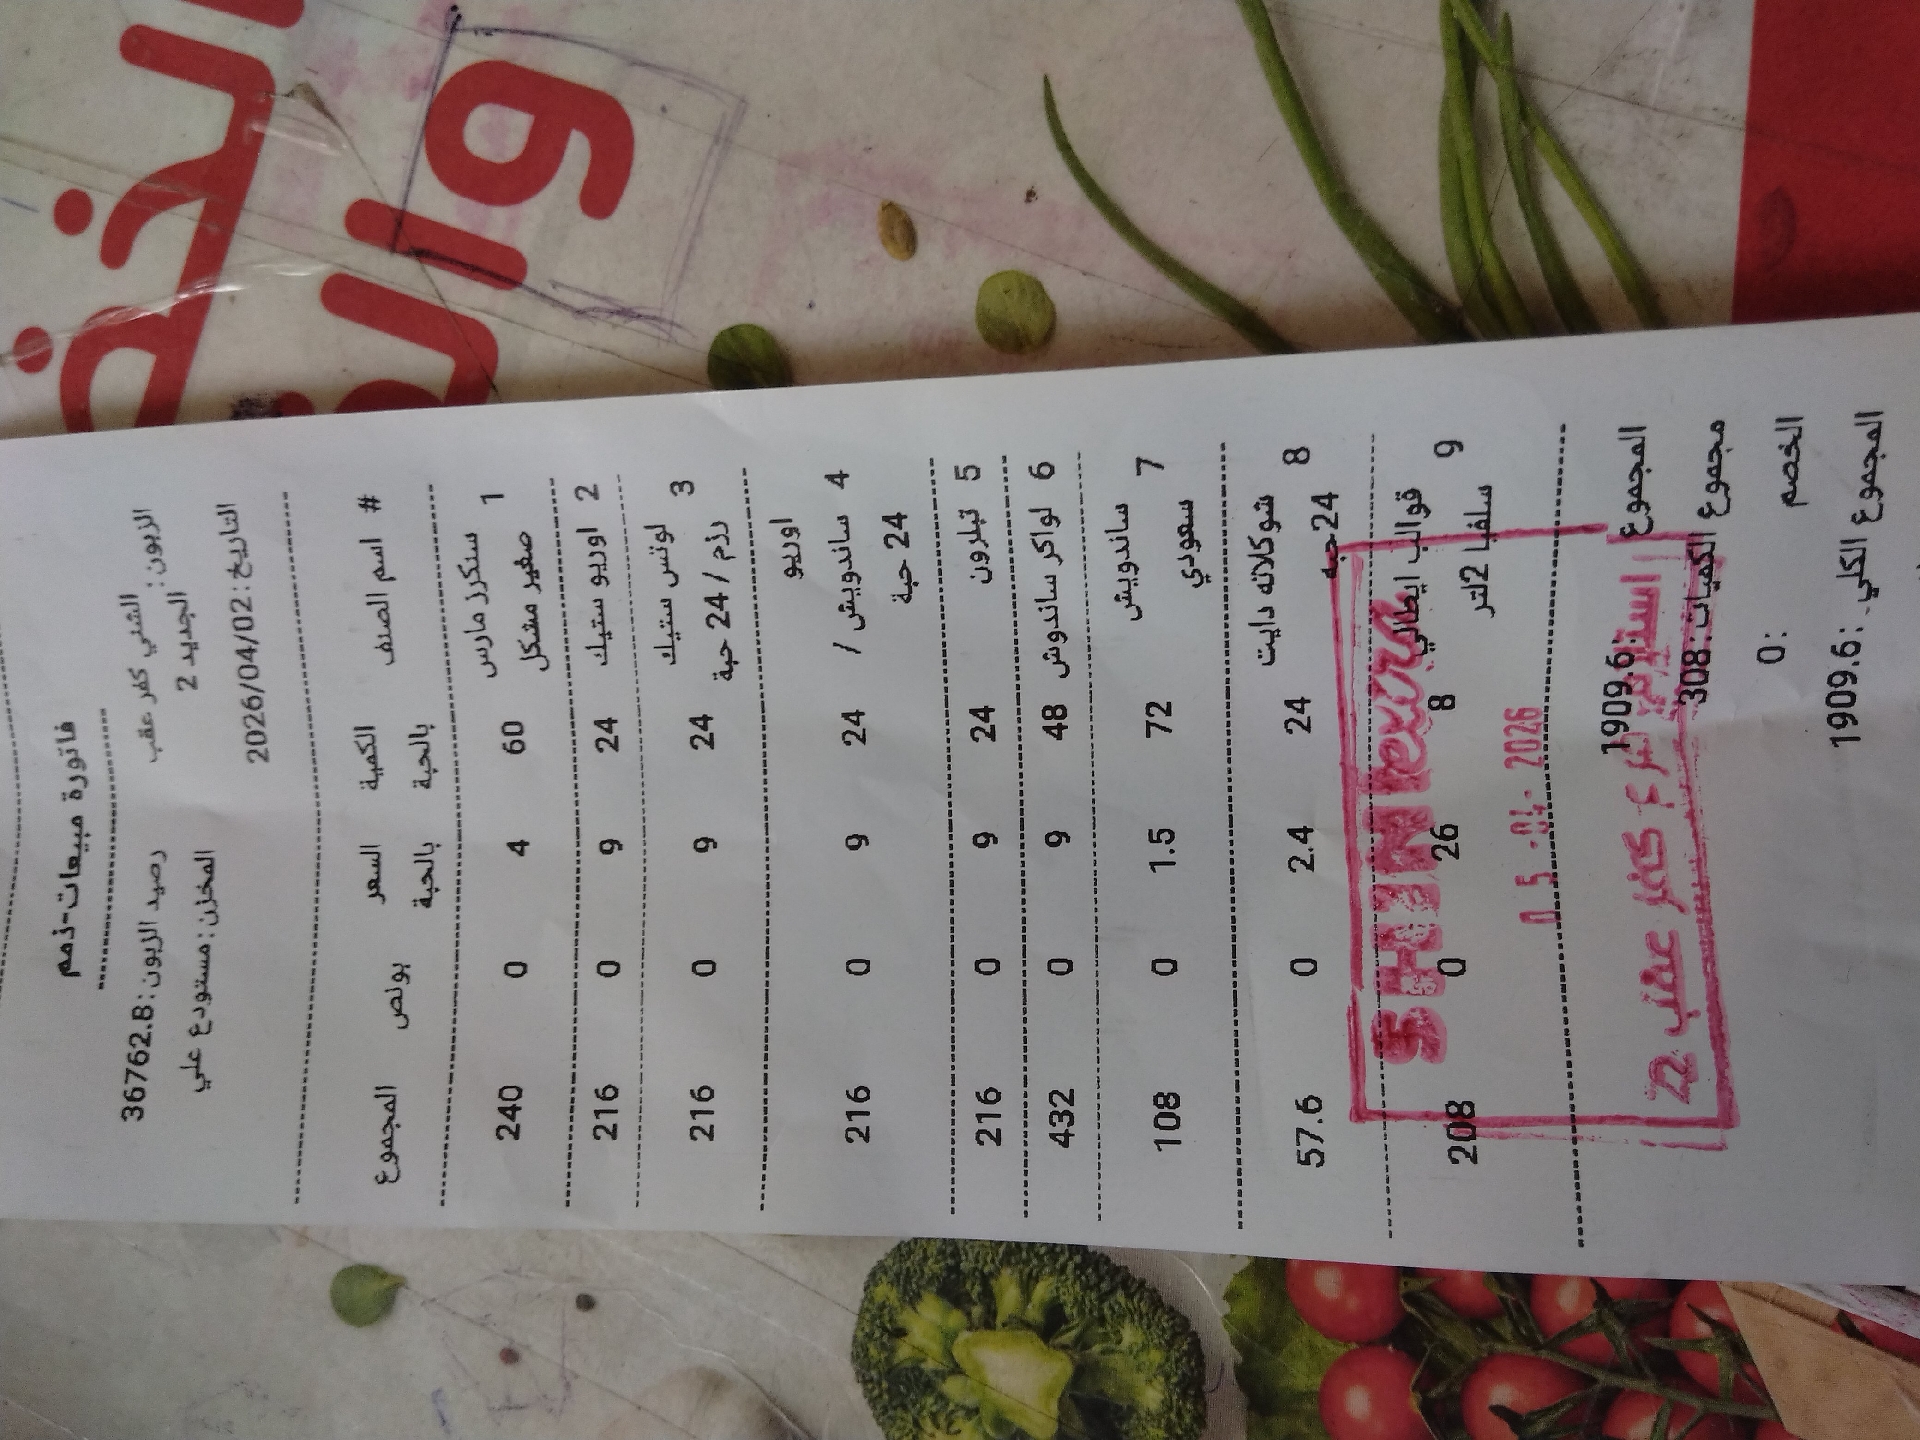 فاتورة مبيعات-ذمم
الزبون: الشني كفر عقب الجديد 2
رصيد الزبون: 36762.8
التاريخ: 2026/04/02
المخزن: مستودع علي
# اسم الصنف الكمية بالحبة السعر بالحبة بونص المجموع
1 سنكرز مارس صغير مشكل 60 4 0 240
2 اوريو ستيك 24 9 0 216
3 لوتس ستيك رزم / 24 حبة 24 9 0 216
4 اوريو ساندويش / 24 حبة 24 9 0 216
5 تبلرون 24 9 0 216
6 لواكر ساندوش 48 9 0 432
7 ساندويش سعودي 72 1.5 0 108
8 شوكلاته دايت 24حبه 24 2.4 0 57.6
9 قوالب ايطالي سلفيا 2لتر 8 26 0 208
SHINI extra
0 5 -04- 2026
كفر عقب 22
المجموع :1909.6
مجموع الكميات :308
الخصم :0
المجموع الكلي :1909.6